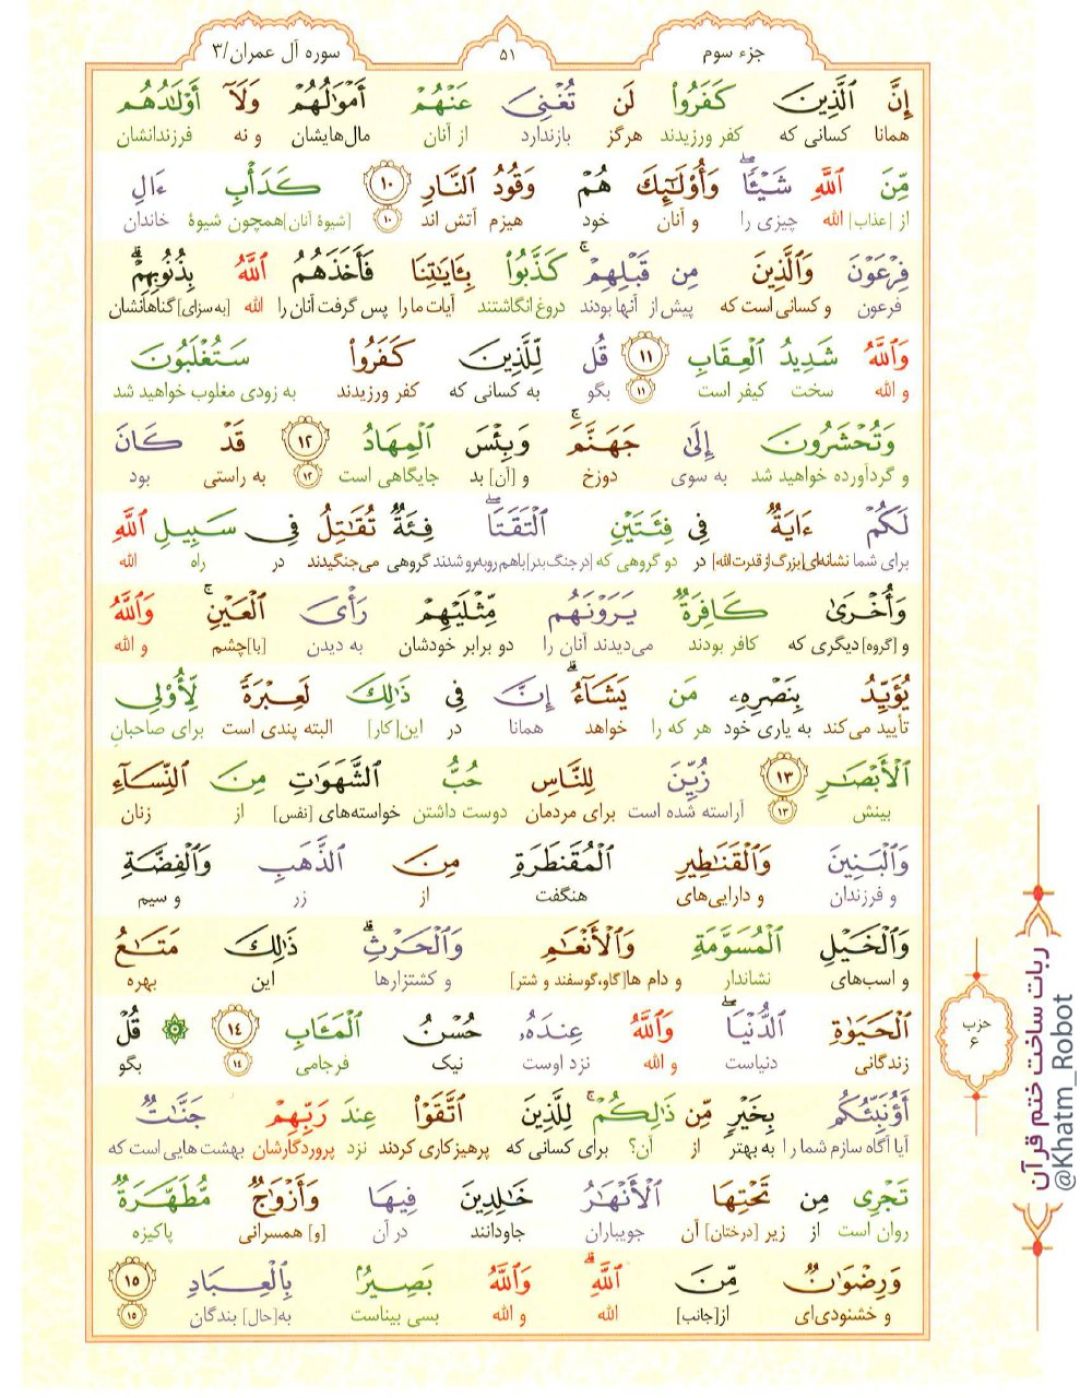 جزء سوم
۵۱
سوره آل عمران/۳
إِنَّ ٱلَّذِينَ كَفَرُوا۟ لَن تُغْنِىَ عَنْهُمْ أَمْوَٰلُهُمْ وَلَآ أَوْلَٰدُهُم
همانا کسانی که کفر ورزیدند هرگز بازندارد از آنان مال‌هایشان و نه فرزندانشان
مِّنَ ٱللَّهِ شَيْـًٔا ۖ وَأُو۟لَٰٓئِكَ هُمْ وَقُودُ ٱلنَّارِ ۱۰ كَدَأْبِ ءَالِ
از [عذاب] الله چیزی را و آنان خود هیزم آتش اند ۱۰ [شیوهٔ آنان] همچون شیوهٔ خاندان
فِرْعَوْنَ وَٱلَّذِينَ مِن قَبْلِهِمْ ۚ كَذَّبُوا۟ بِـَٔايَٰتِنَا فَأَخَذَهُمُ ٱللَّهُ بِذُنُوبِهِمْ ۗ
فرعون و کسانی است که پیش از آنها بودند دروغ انگاشتند آیات ما را پس گرفت آنان را الله [به سزای] گناهانشان
وَٱللَّهُ شَدِيدُ ٱلْعِقَابِ ۱۱ قُل لِّلَّذِينَ كَفَرُوا۟ سَتُغْلَبُونَ
و الله سخت کیفر است ۱۱ بگو به کسانی که کفر ورزیدند به زودی مغلوب خواهید شد
وَتُحْشَرُونَ إِلَىٰ جَهَنَّمَ ۚ وَبِئْسَ ٱلْمِهَادُ ۱۲ قَدْ كَانَ
و گردآورده خواهید شد به سوی دوزخ و [آن] بد جایگاهی است ۱۲ به راستی بود
لَكُمْ ءَايَةٌ فِى فِئَتَيْنِ ٱلْتَقَتَا ۖ فِئَةٌ تُقَٰتِلُ فِى سَبِيلِ ٱللَّهِ
برای شما نشانه‌ای [بزرگ از قدرت الله] در دو گروهی که [در جنگ بدر] باهم روبه‌رو شدند گروهی می‌جنگیدند در راه الله
وَأُخْرَىٰ كَافِرَةٌ يَرَوْنَهُم مِّثْلَيْهِمْ رَأْىَ ٱلْعَيْنِ ۚ وَٱللَّهُ
و [گروه] دیگری که کافر بودند می‌دیدند آنان را دو برابر خودشان به دیدن [با] چشم و الله
يُؤَيِّدُ بِنَصْرِهِۦ مَن يَشَآءُ ۗ إِنَّ فِى ذَٰلِكَ لَعِبْرَةً لِّأُو۟لِى
تأیید می‌کند به یاری خود هر که را خواهد همانا در این [کار] البته پندی است برای صاحبان
ٱلْأَبْصَٰرِ ۱۳ زُيِّنَ لِلنَّاسِ حُبُّ ٱلشَّهَوَٰتِ مِنَ ٱلنِّسَآءِ
بینش ۱۳ آراسته شده است برای مردمان دوست داشتن خواسته‌های [نفس] از زنان
وَٱلْبَنِينَ وَٱلْقَنَٰطِيرِ ٱلْمُقَنطَرَةِ مِنَ ٱلذَّهَبِ وَٱلْفِضَّةِ
و فرزندان و دارایی‌های هنگفت از زر و سیم
وَٱلْخَيْلِ ٱلْمُسَوَّمَةِ وَٱلْأَنْعَٰمِ وَٱلْحَرْثِ ۗ ذَٰلِكَ مَتَٰعُ
و اسب‌های نشاندار و دام ها [گاو، گوسفند و شتر] و کشتزارها این بهره
ٱلْحَيَوٰةِ ٱلدُّنْيَا ۖ وَٱللَّهُ عِندَهُۥ حُسْنُ ٱلْمَـَٔابِ ۱۴ ۞ قُلْ
زندگانی دنیاست و الله نزد اوست نیک فرجامی ۱۴ بگو
أَؤُنَبِّئُكُم بِخَيْرٍ مِّن ذَٰلِكُمْ ۚ لِلَّذِينَ ٱتَّقَوْا۟ عِندَ رَبِّهِمْ جَنَّٰتٌ
آیا آگاه سازم شما را به بهتر از آن؟ برای کسانی که پرهیزکاری کردند نزد پروردگارشان بهشت هایی است که
تَجْرِى مِن تَحْتِهَا ٱلْأَنْهَٰرُ خَٰلِدِينَ فِيهَا وَأَزْوَٰجٌ مُّطَهَّرَةٌ
روان است از زیر [درختان] آن جویباران جاودانند در آن [و] همسرانی پاکیزه
وَرِضْوَٰنٌ مِّنَ ٱللَّهِ ۗ وَٱللَّهُ بَصِيرٌۢ بِٱلْعِبَادِ ۱۵
و خشنودی‌ای از [جانب] الله و الله بسی بیناست به [حال] بندگان ۱۵
حزب
۶
ربات ساخت ختم قرآن
@Khatm_Robot